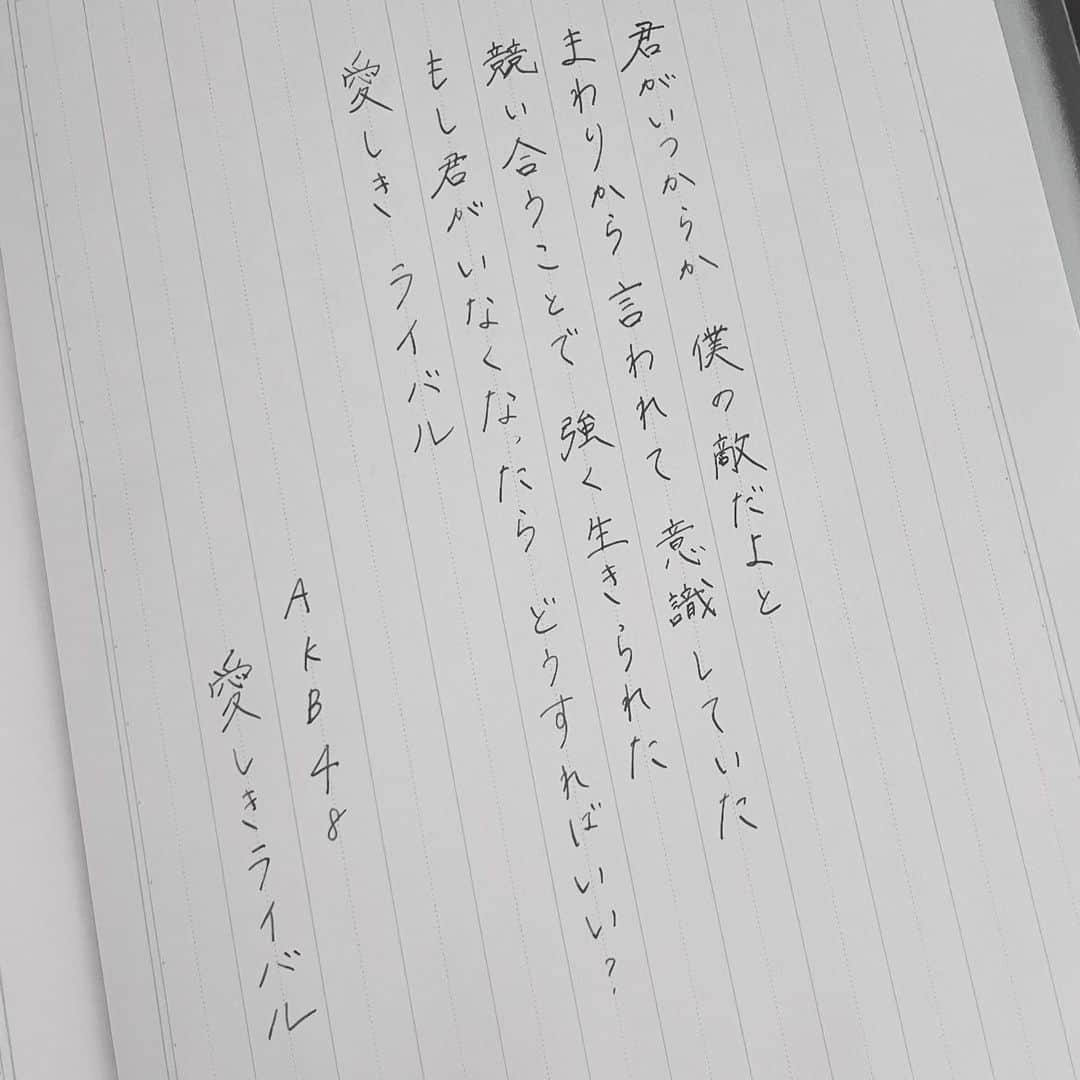 君がいつからか 僕の敵だよと
まわりから言われて 意識していた
競い合うことで 強く生きられた
もし君がいなくなったら どうすればいい?
愛しき ライバル
AKB48
愛しきライバル